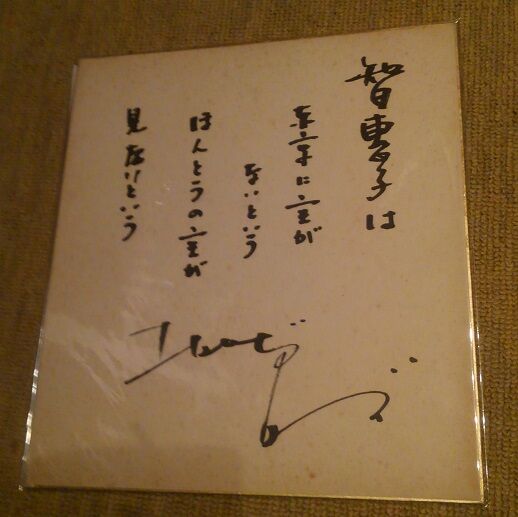 智恵子は
東京に空が
ないという
ほんとうの空が
見たいという